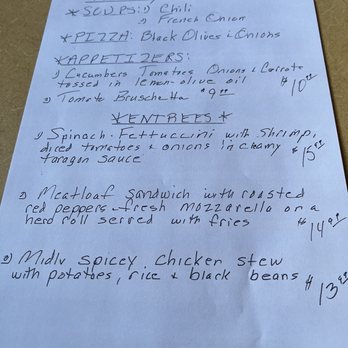 *SOUPS: 1) Chili
2) French Onion
*PIZZA: Black Olives & Onions
*APPETIZERS:
1) Cucumbers Tomatoes Onions & Carrots
tossed in lemon-olive oil $10.00
2) Tomato Bruschetta $9.00
*ENTREES*
1) Spinach Fettuccini with Shrimp,
diced tomatoes & onions in chamy
taragon sauce $15.00
2) Meatloaf Sandwich with roasted
red peppers fresh mozzarella on a
hero roll served with fries $14.00
3) Midly spicey chicken stew
with potatoes, rice & black beans $13.00